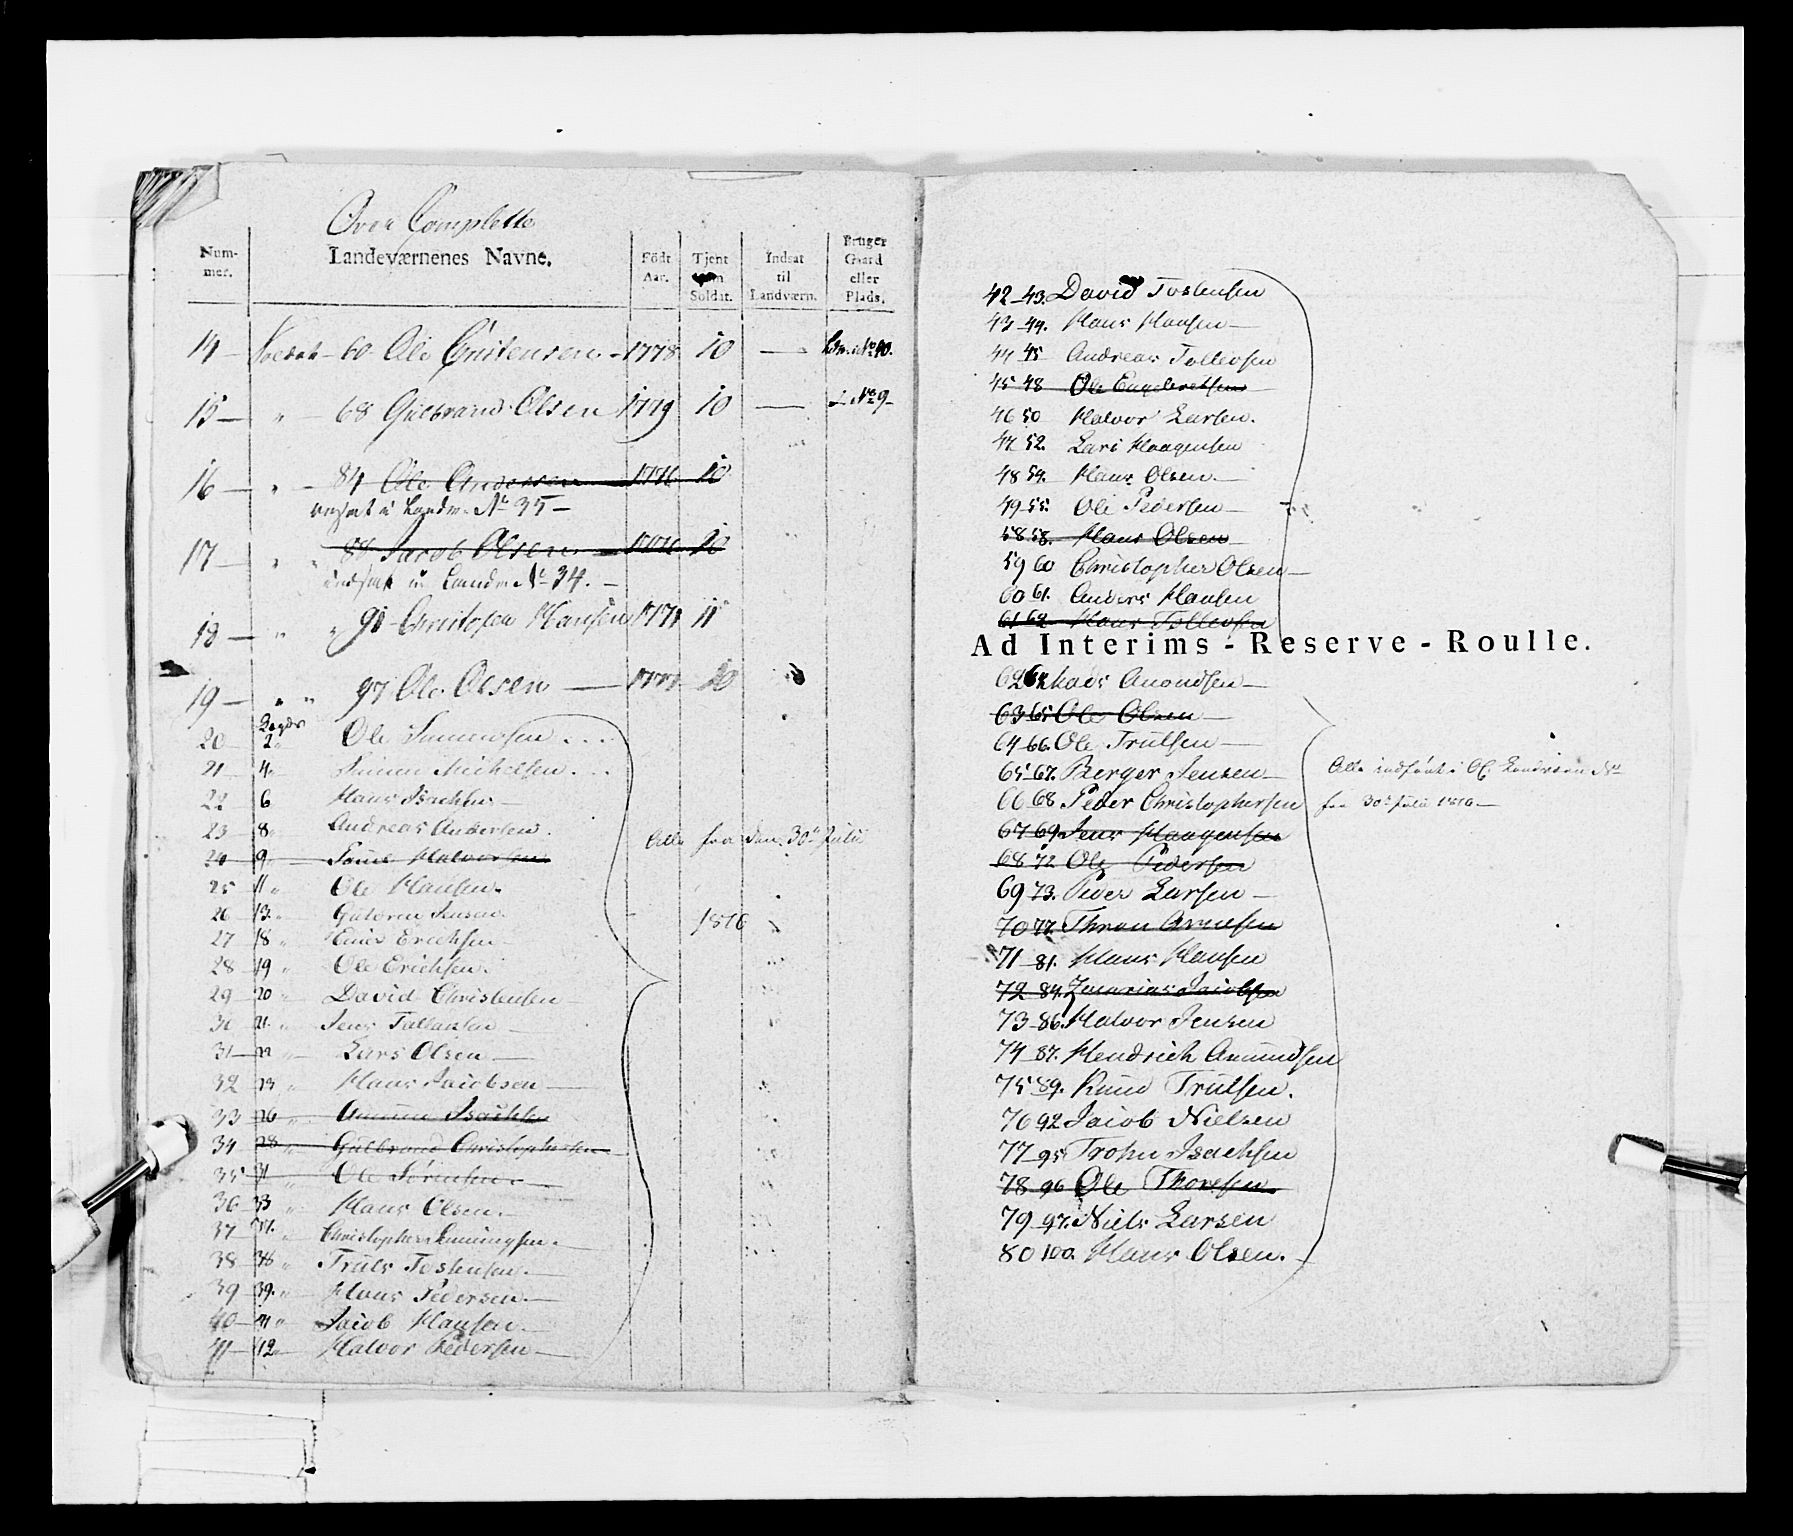 Over Complette
Num-
mer.
Landeværnenes Navne.
Födt
Aar.
Tjent
som
Soldat.
Indsat
til
Landværn.
Bruger
Gaard
eller
Plads.
14 — 60 Ole Cristensen - 1778 10 — No 10.
15 — " — 68 Gulbrand Olsen 1779 10 — No 9 —
16 — " — 84 Ole Andersen 1776 10
Landv. No 35 —
17 — " " 88 Jacob Olsen 1776 10
indsat Landv No 34. —
18 — " " 91 Christopher Hansen 1771 11
19 — " " 97 Ole Olsen — 1777 10
20 2 " Ole
21 4 " Simen Michelsen
22 6 Hans Isachsen —
23 8 " Andreas Andersen.
24 9 " Halvorsen
25 11 " Ole Hansen.
26 13 " Jensen.
27 18 " Erichsen —
28 19 " Ole Erichsen.
29 20 " David Christensen —
30 21 " Jens Tollefsen —
31 22 " Lars Olsen —
32 23 " Hans Jacobsen —
33 26 " Isachsen
34 28 " Gulbrand Christophersen
35 31 " Ole Sørensen —
36 33 " Hans Olsen. —
37 37. " Christopher
38 38 " Truls Tostensen. —
39 39. " Hans Pedersen. —
40 41 " Jacob Hansen. —
41 42 " Halvor Pedersen —
Alle fra den 30te Julii
1816
42 — 43. David Tostensen
43 — 44. Hans Hansen —
44 45 Andreas Tollefsen
45 48 Ole Engebretsen —
46 50 Halvor Larsen.
47 52. Lars Haagensen
48 54. Hans Olsen. —
49 — 55. Ole Pedersen —
58 58. Hans Olsen —
59 60 Christopher Olsen —
60 61. Anders Hansen
61 62 Hans Tollefsen
Ad Interims - Reserve - Roulle.
62 64 Mads Amondsen —
63 65 Ole Olsen —
64 — 66. Ole Trulsen —
65 — 67. Berger Jensen —
66 68 Peder Christophersen
67 69 Jens Haagensen
68 72 Ole Pedersen
69 — 73. Peder Larsen —
70 77. Thron Arnesen
71 — 81. Hans Hansen
72 84. Zacarias Jacobsen
73 — 86. Halvor Jensen
74 — 87. Hendrich Amundsen
75 89. Knud Trulsen.
76 92 Jacob Nielsen
77 — 95 Trohn Isachsen
78 96 Ole Thoresen.
79 — 97. Niels Larsen
80 100. Hans Olsen. —
Alle indført i
fra 30te Julii 1816 —